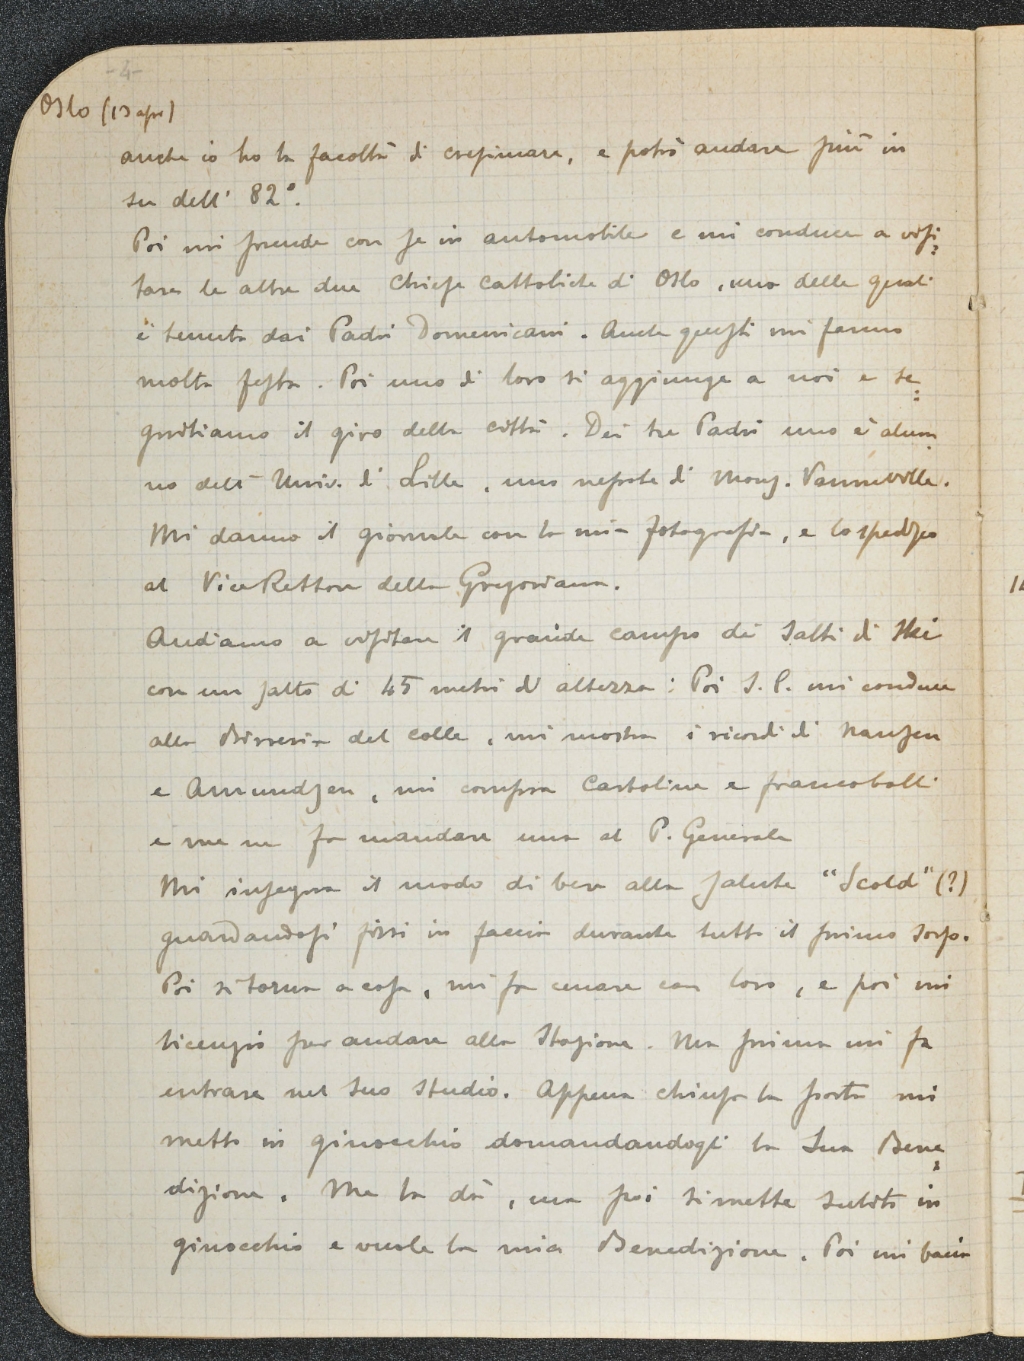 -4-
Oslo (13 apr)
anche io ho la facoltà di cresimare, e potrò andare più in
su dell' 82°.
Poi mi prende con se in automobile e mi conduce a visi=
tare le altre due Chiese Cattoliche di Oslo, una delle quali
è tenuta dai Padri Domenicani. Anche questi mi fanno
molta festa. Poi uno di loro si aggiunge a noi e se=
guitiamo il giro della città. Dei tre Padri uno è alun=
no dell' Univ. di Lille, uno nepote di Mons. Vanneville.
Mi danno il giornale con la mia fotografia, e lo spedisco
al Vice Rettore della Gregoriana.
Andiamo a visitare il grande campo dei salti di Ski
con un salto di 45 metri di altezza: Poi S. E. mi conduce
alla Birreria del colle, mi mostra i ricordi di Nansen
e Amundsen, mi compra Cartoline e francobolli
e me ne fa mandare una al P. Generale
Mi insegna il modo di bere alla salute "Scold" (?)
guardandosi fissi in faccia durante tutto il primo sorso.
Poi si torna a casa, mi fa cenare con loro, e poi mi
licenzio per andare alla Stazione. Ma prima mi fa
entrare nel suo studio. Appena chiusa la porta mi
metto in ginocchio domandandogli la Sua Bene=
dizione. Me la dà, ma poi si mette subito in
ginocchio e vuole la mia Benedizione. Poi mi bacia